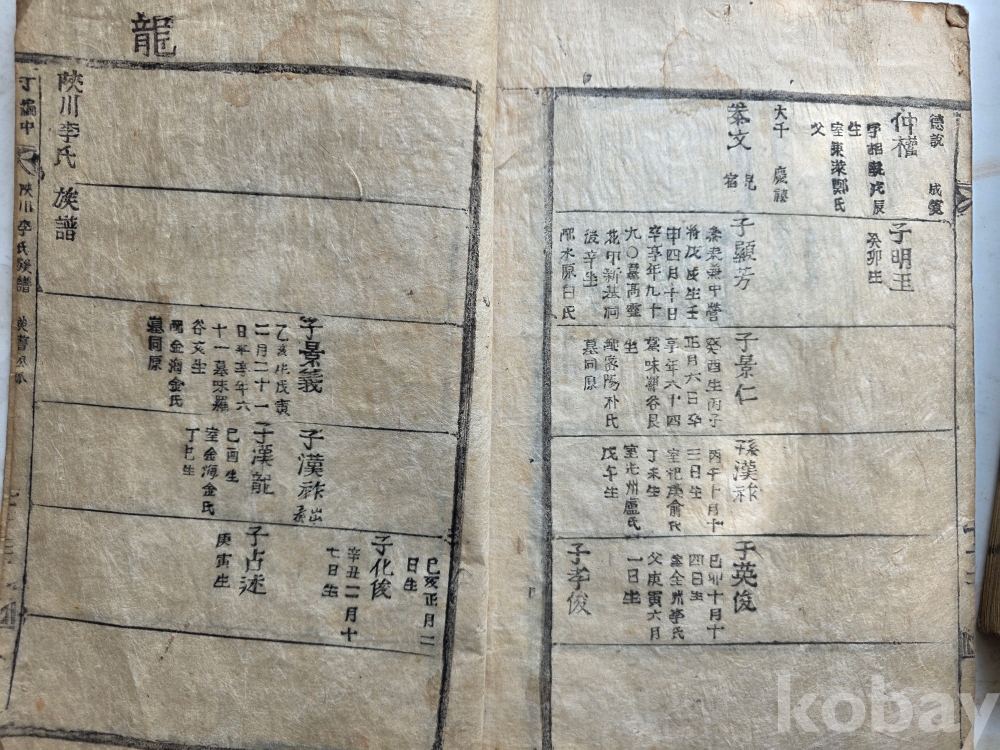 龍
德毅 成箕
仲權
字相
戊辰
生
室東萊鄭氏
父
大千 慶
文
兒
宿
子明玉
癸卯生
子顯芳
中營
將戊戌生壬
申四月十日
卒享年九十
九〇墓高靈
花甲新基洞
後辛坐
配水原白氏
子景仁
癸酉生丙子
正月六日卒
享年六十四
墓味羅谷艮
坐
配密陽朴氏
墓同原
孫漢祚
丙午十月十
三日生
室杞溪俞氏
丁未生
室光州盧氏
戊午生
子英俊
己卯十月十
四日生
室全州李氏
父庚寅六月
一日生
子孝俊
己亥正月二
日生
子化俊
辛丑二月十
七日生
子景義
乙亥生戊寅
二月二十一
日卒享年六
十一墓味羅
谷亥坐
配金海金氏
墓同原
子漢祚
出系
子漢龍
己酉生
室金海金氏
丁巳生
子占述
庚寅生
陜川李氏族譜
丁編中
陜川李氏族譜
kobay